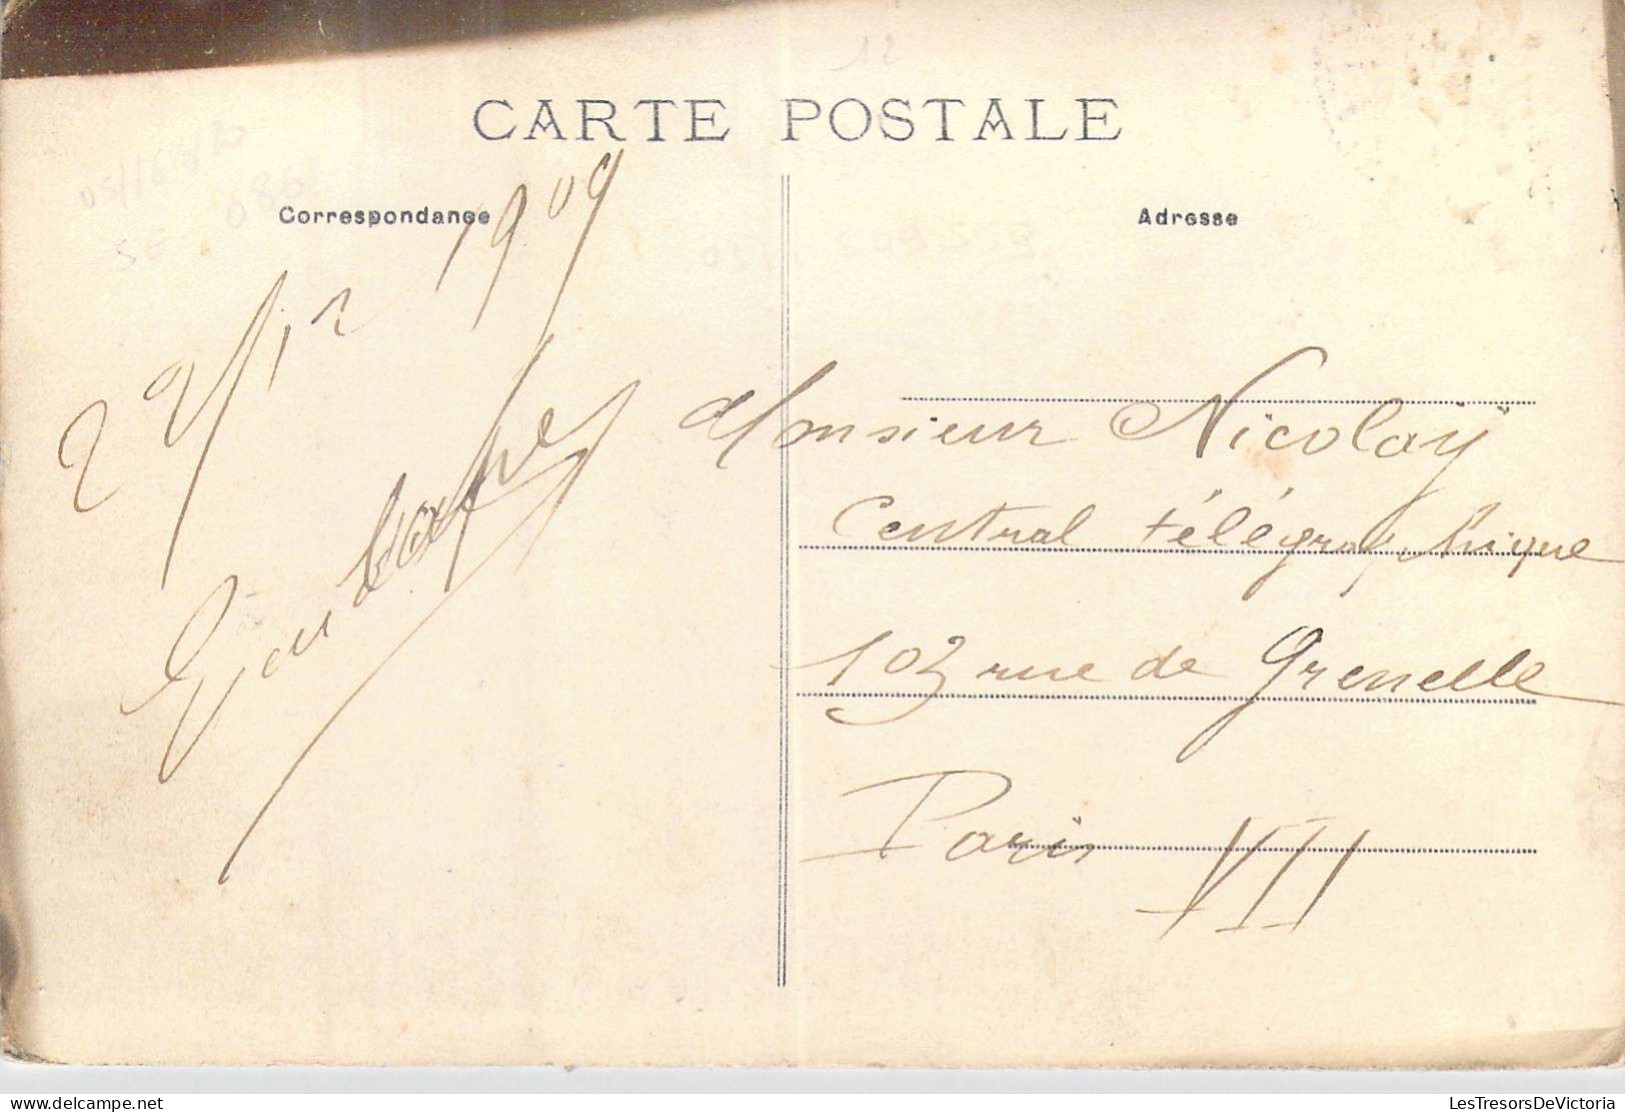 CARTE POSTALE
Correspondance
Adresse
29/12 1909
Monsieur Nicolaÿ
Central télégraphique
103 rue de Grenelle
Paris VII
LesTresorsDeVictoria